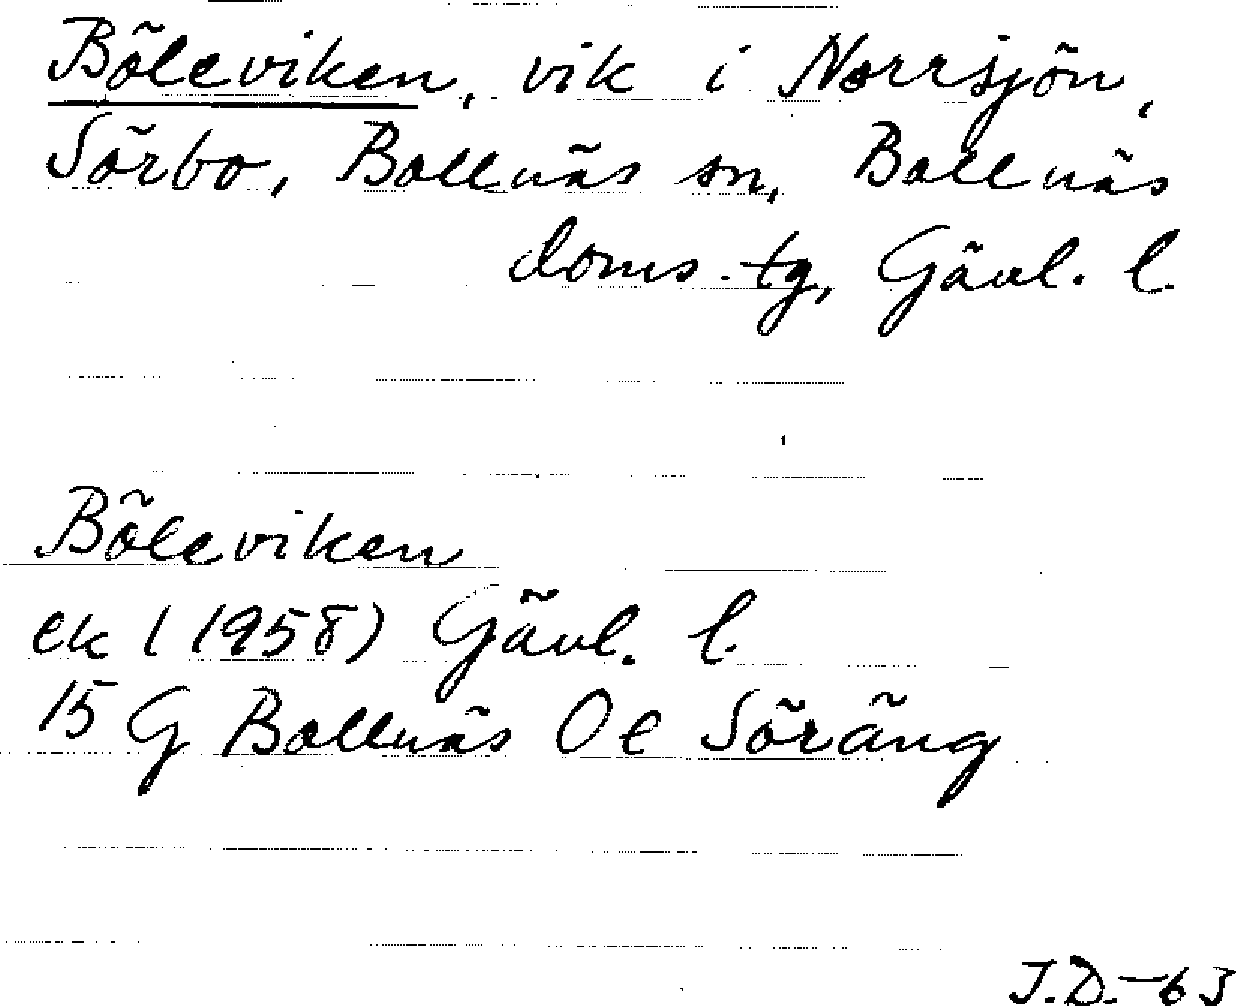 Böleviken, vik i Norrsjön,
Sörbo, Bollnäs sn, Bollnäs
doms.tg, Gävl. l.
Böleviken
ek (1958) Gävl. l.
15 G Bollnäs Öe Söräng
J.D.-63